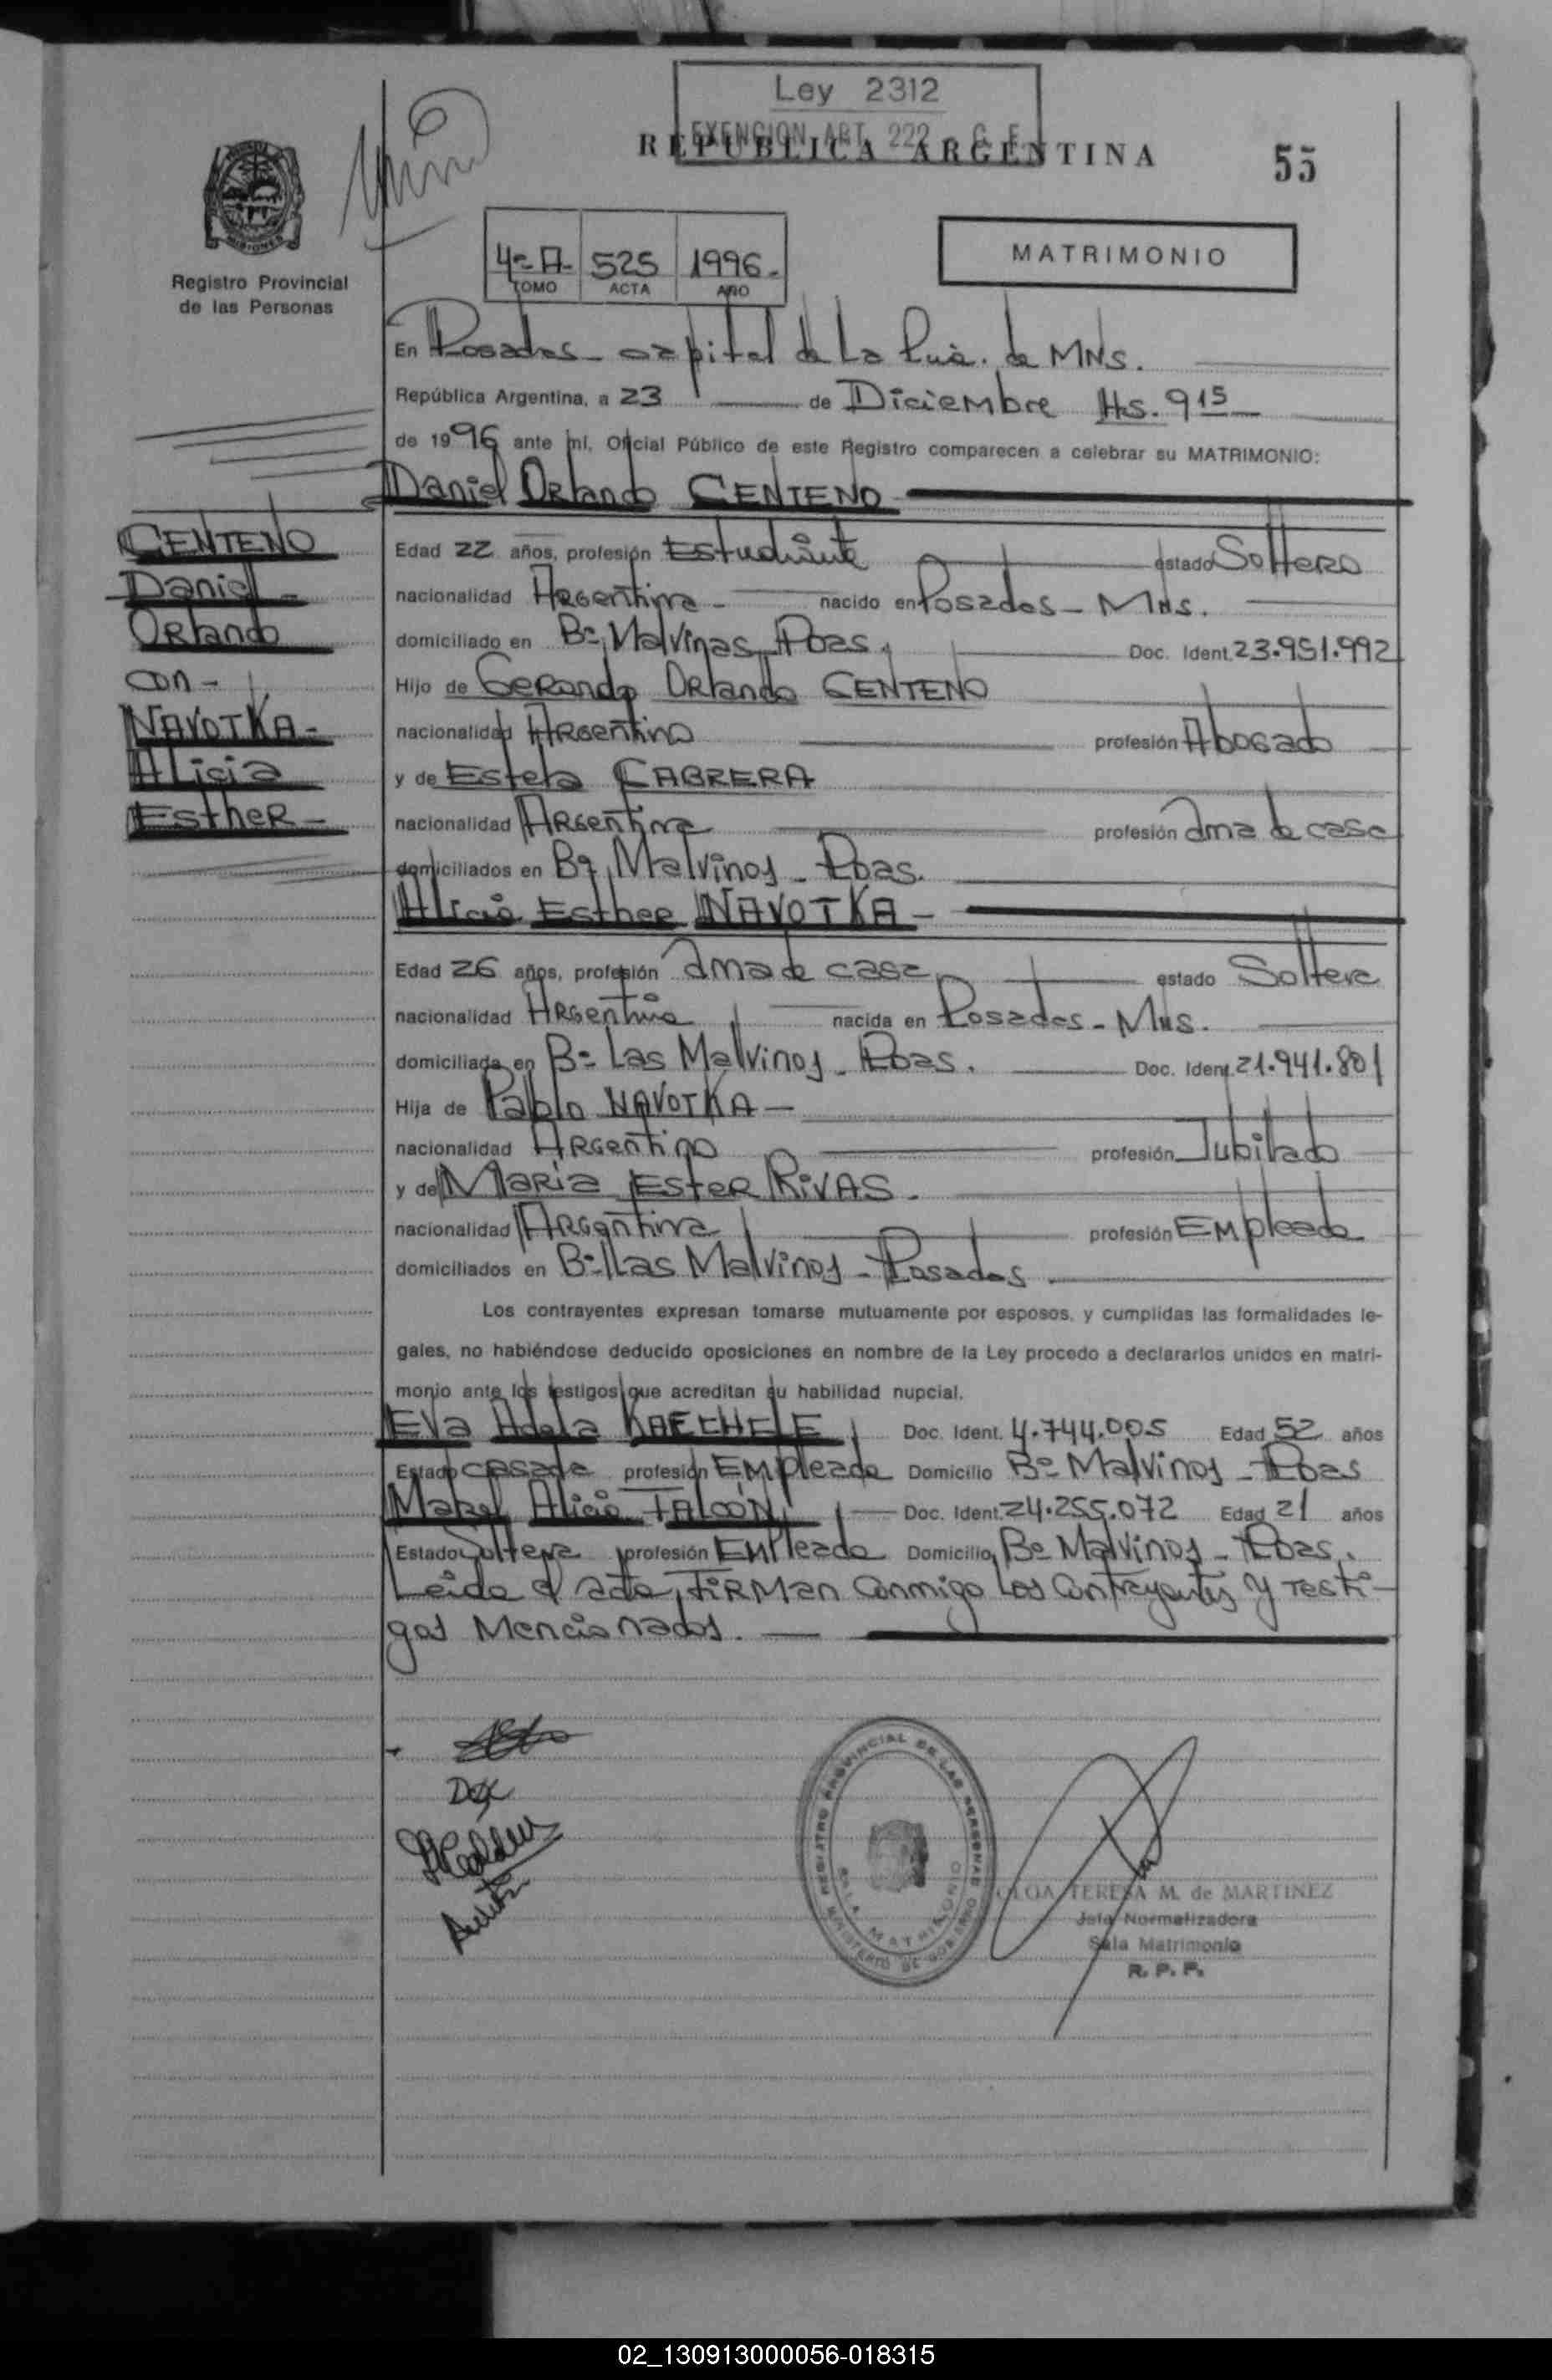 Ley 2312
EXENCION ART. 222 - C. F.
REPUBLICA ARGENTINA
55
MISIONES
Registro Provincial
de las Personas
4º A- 525 1996.-
TOMO ACTA AÑO
MATRIMONIO
En Posadas - capital de La Pcia. de MNS.
República Argentina, a 23 de Diciembre Hs. 9 15
de 1996 ante mí, Oficial Público de este Registro comparecen a celebrar su MATRIMONIO:
Daniel Orlando CENTENO
CENTENO
Daniel -
Orlando
con -
NAVOTKA -
Alicia
Esther -
Edad 22 años, profesión Estudiante estado Soltero
nacionalidad Argentina - nacido en Posadas - Mns.
domiciliado en Bº Malvinas Pdas. Doc. Ident. 23.951.992
Hijo de Gerardo Orlando CENTENO
nacionalidad Argentino profesión Abogado
y de Estela CABRERA
nacionalidad Argentina profesión ama de casa
domiciliados en Bº Malvinas - Pdas.
Alicia Esther NAVOTKA -
Edad 26 años, profesión ama de casa estado Soltera
nacionalidad Argentina nacida en Posadas - Mns.
domiciliada en Bº Las Malvinas - Pdas. Doc. Ident. 21.941.801
Hija de Pablo NAVOTKA -
nacionalidad Argentino profesión Jubilado
y de María Ester RIVAS.
nacionalidad Argentina profesión Empleada
domiciliados en Bº Las Malvinas - Posadas.
Los contrayentes expresan tomarse mutuamente por esposos, y cumplidas las formalidades le-
gales, no habiéndose deducido oposiciones en nombre de la Ley procedo a declararlos unidos en matri-
monio ante los testigos que acreditan su habilidad nupcial.
Eva Adela KAECHELE Doc. Ident. 4.744.005 Edad 52 años
Estado casada profesión Empleada Domicilio Bº Malvinas - Pdas
Mabel Alicia FALCÓN Doc. Ident. 24.255.072 Edad 21 años
Estado Soltera profesión Empleada Domicilio Bº Malvinas - Pdas.
Leída el acta, firman conmigo los contrayentes y testi-
gos mencionados.
REGISTRO PROVINCIAL DE LAS PERSONAS
SALA MATRIMONIO
MINISTERIO DE GOBIERNO
TERESA M. de MARTINEZ
Jefa Normalizadora
Sala Matrimonio
R. P. P.
02_130913000056-018315